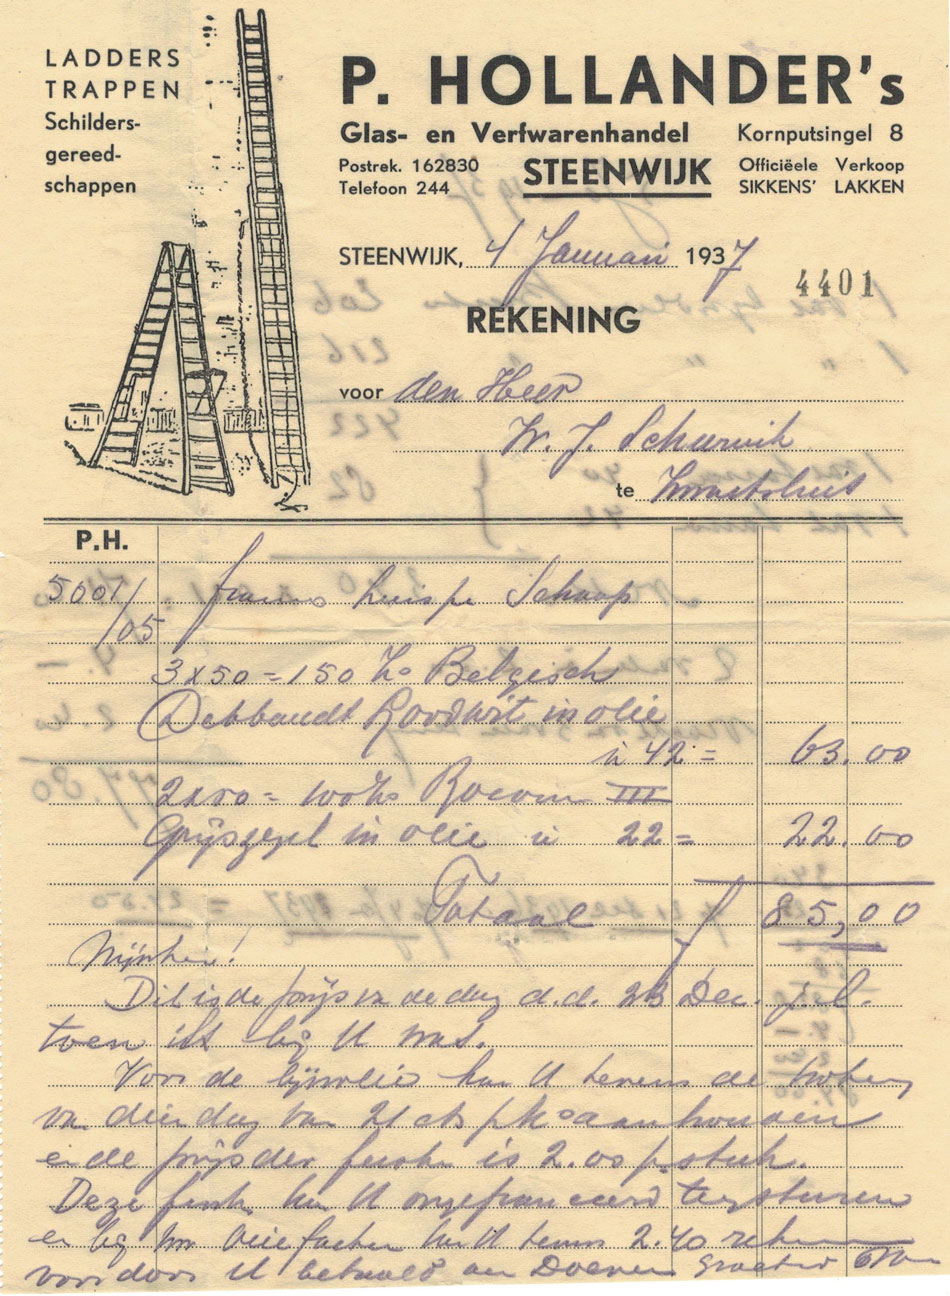 LADDERS
TRAPPEN
Schilders-
gereed-
schappen
P. HOLLANDER's
Glas- en Verfwarenhandel Kornputsingel 8
Postrek. 162830 STEENWIJK Officiëele Verkoop
Telefoon 244 SIKKENS' LAKKEN
STEENWIJK, 4 Januari 1937
4401
REKENING
voor den Heer
W. J. Schuurink
te Zwartsluis
P.H.
5001/05 franco per Schaap
3 x 50 = 150 Ko Belgisch
Loodwit in olie
à 42 = 63.00
2x50 = 100 Ko III
in olie à 22 = 22.00
Totaal f 85,00
Mijnheer!
Dit is de prijs van de dag d.d. 23 Dec. j.l.
toen ik bij U was.
Voor de lijnolie kan U tevens de
van dien dag van 21 ct p. Ko aanhouden
en de prijs der fusten is 2.00 p. stuk.
Deze fusten kan U ongefranceerd terugsturen
en bij kan U tevens 2.40
voor door U betaald aan